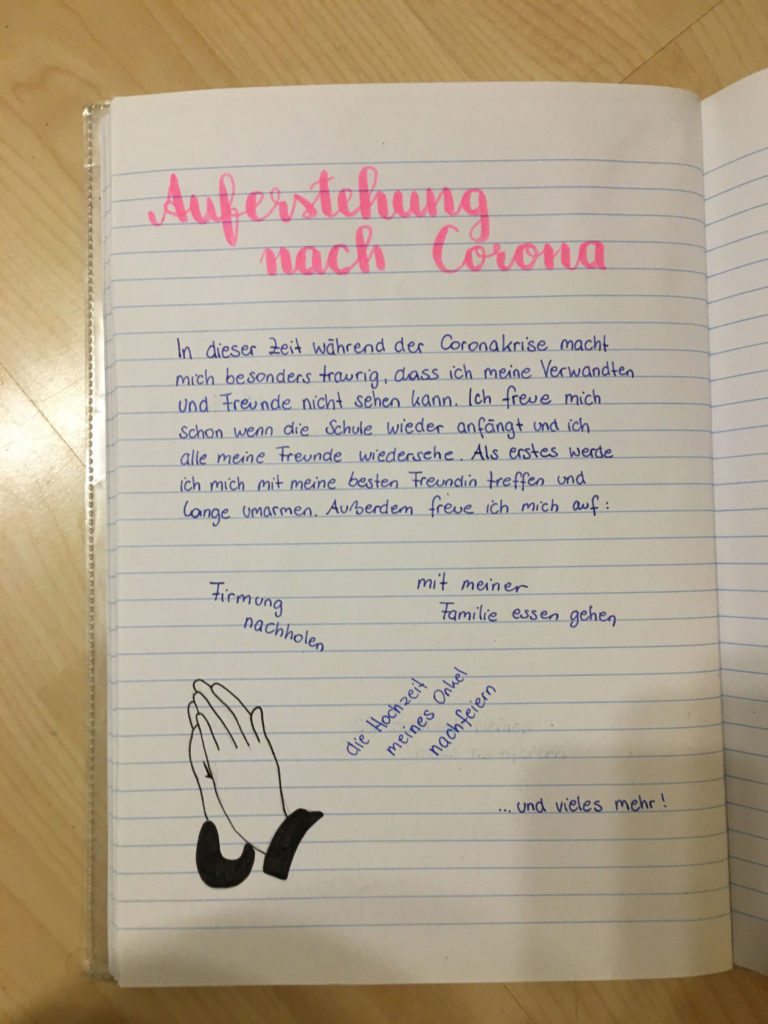 Auferstehung
nach Corona
In dieser Zeit während der Coronakrise macht
mich besonders traurig, dass ich meine Verwandten
und Freunde nicht sehen kann. Ich freue mich
schon wenn die Schule wieder anfängt und ich
alle meine Freunde wiedersehe. Als erstes werde
ich mich mit meine besten Freundin treffen und
lange umarmen. Außerdem freue ich mich auf:
Firmung
nachholen
mit meiner
Familie essen gehen
die Hochzeit
meines Onkel
nachfeiern
... und vieles mehr!